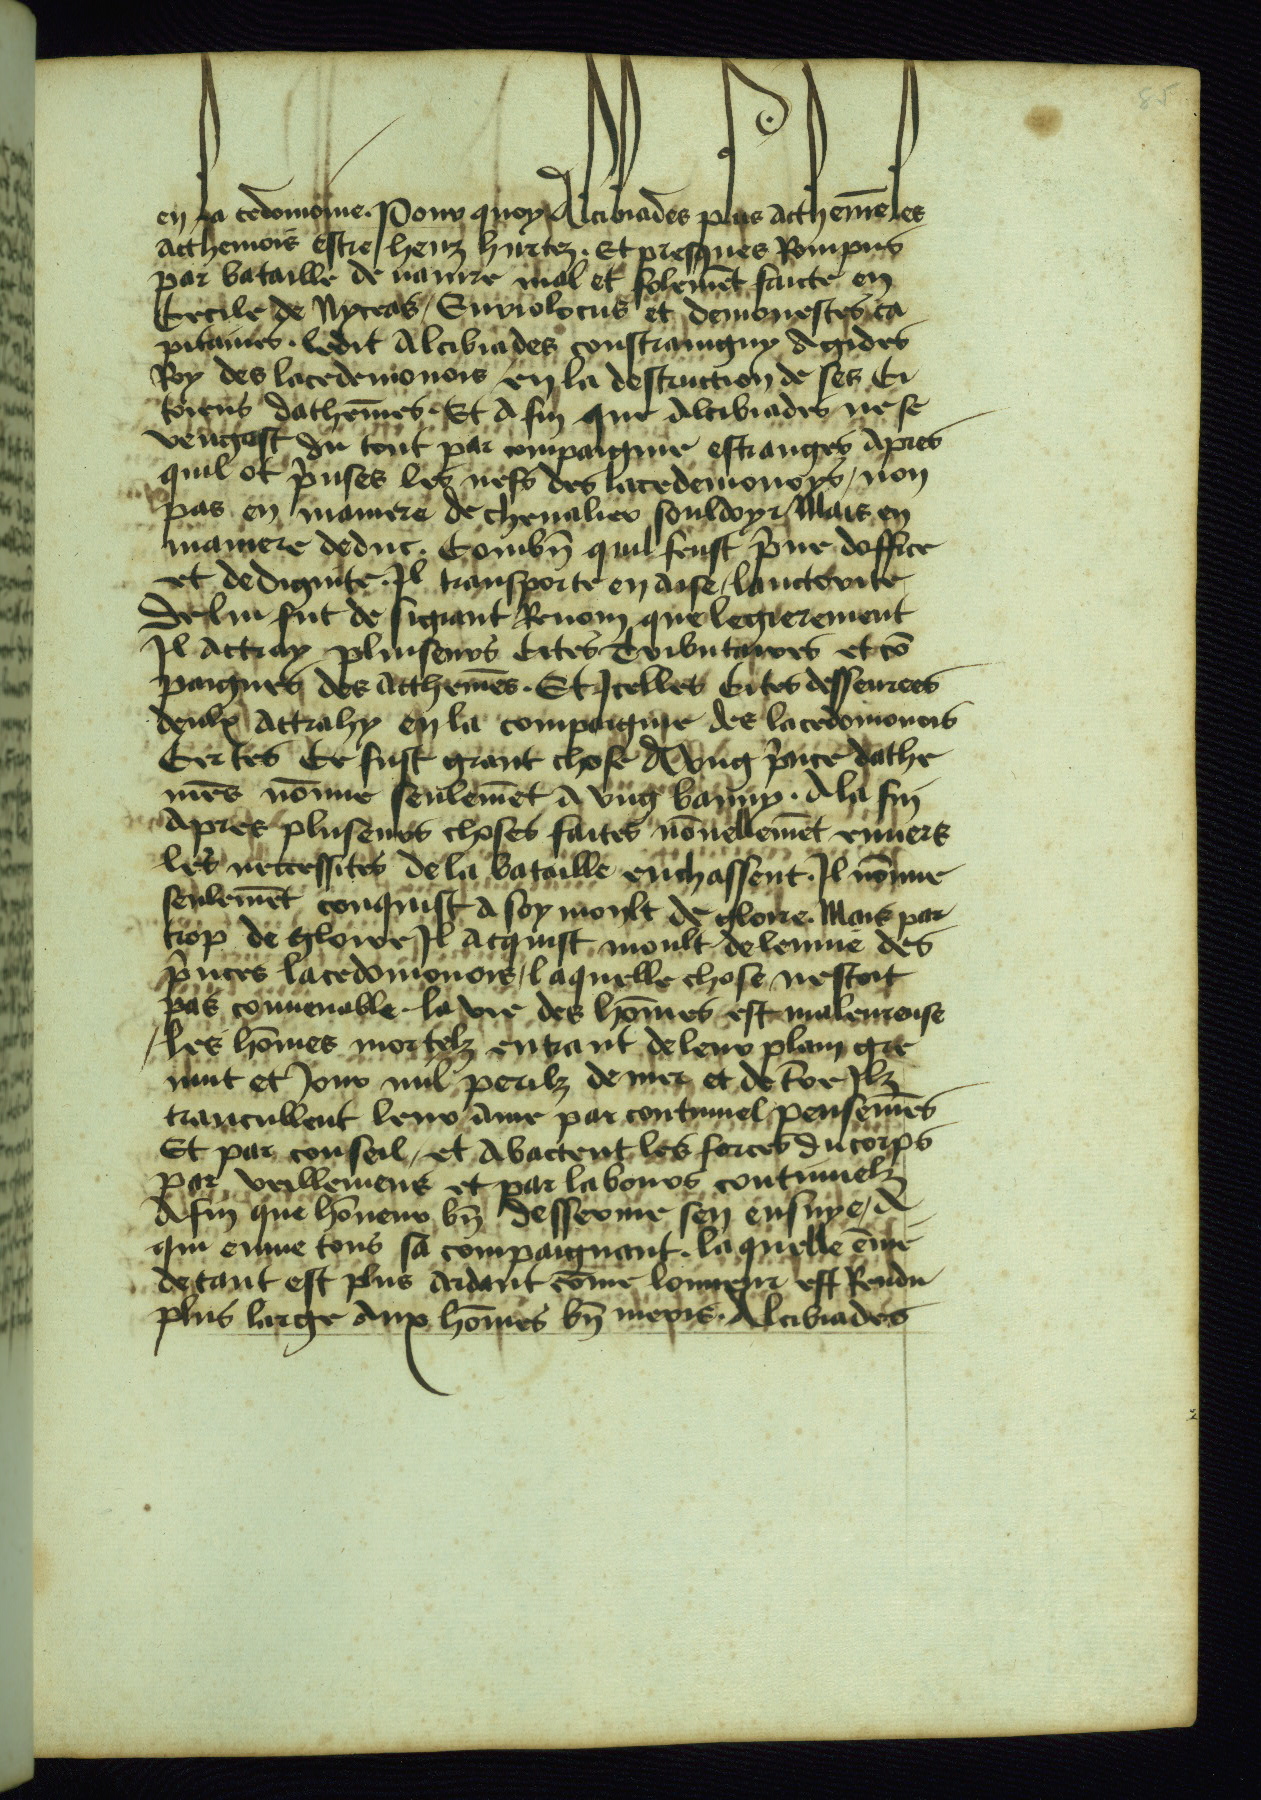 85
en la cedomōnie. Pour quoy Alcibiades plus acthemēs les
acthenois estre heuz hurtez. Et presques Rompus
par bataille de nauire mal et folemēt faicte en
Cecile de Nyceas / Euriolocus et demonestes ca
pitaines. ledit Alcibiades constraingny Agides
Roy des lacedemonois / en la destruction de ses Ci
toiens dathēmes. Et A fin que Alcibiades ne se
vengast du tout par compaignie estranges Apres
quil ot p̄nses les nefs des lacedemonoys / non
pas en maniere de cheualier souldoyr / Mais en
maniere de duc. Combn̄ quil feust p̄ue doffice
et de dignite. Il transporte en aise / lauctorite
de lui fut de si grant Renom que legierement
Il Actray pluseurs Cites Tributaires et cō
paignes des Atthemēs. Et Icelles Cites desseurees
deulx Attrahy en la compaignie des lacedomonois
Certes Ce fust grant chose A vng p̄nce dathe
mēs nōnne seulemēt A vng banny. A la fin
Apres pluseurs choses faites nōuellemēt enuers
les neccessites de la bataille enchassent. Il nōnne
seulemēt conquist A soy moult de gloire. Mais par
trop de gloire Il Acquist moult de lenuie des
p̄nces lacedomonois / laquelle chose nestoit
pas conuenable. la vie des hōmes est maleureuse
/ les hōmes mortelz entrant de leur plain gre
nuit et Jour mil perilz de mer et de t̄re Ilz
trancullent leur āme par continuel pensemēs
Et par conseil / et Abactent les forces du corps
par veillemens et par labours continuelz
A fin que hōneur bn̄ desseruie sen ensuye / A
qui enuie tous sa compaignant. la quelle ēuie
de tant est plus ardant cōme lonneur est Rendu
plus large aux hōmes bn̄ meris. Alcibiades